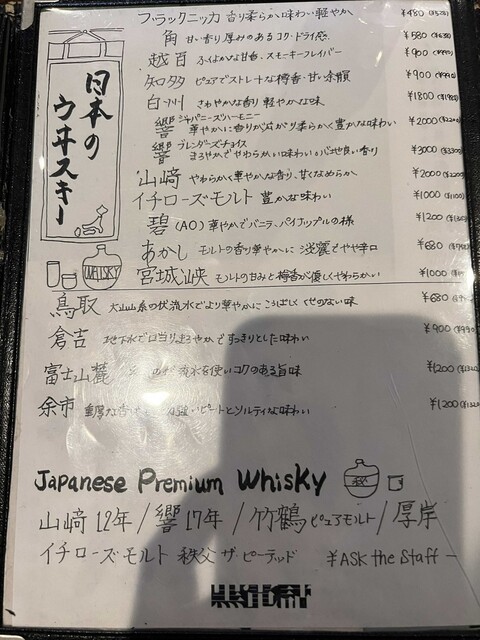 日本の
ウヰスキー
WHISKY
ブラックニッカ 香り柔らか味わい軽やか ¥480
角 甘い香り厚みのあるコク・ドライ感 ¥580
越百 ふくよかな甘白、スモーキーフレイバー ¥900
知多 ピュアでストレートな樽香・甘い余韻 ¥900
白州 さわやかな香り 軽やかな味 ¥1800
響 ジャパニーズハーモニー
華やかに香りが広がり柔らかく豊かな味わい ¥2000
響 ブレンダーズチョイス
まろやかでやわらかい味わい 心地良い香り ¥3000
山崎 やわらかく華やかな香り、甘くなめらか ¥2000
イチローズモルト 豊かな味わい ¥1000 (¥1100)
碧(AO) 華やかでバニラ、パイナップルの様 ¥1200
あかし モルトの香り華やかに 淡麗でやや辛口 ¥680
宮城峡 モルトの甘みと樽香が優しくやわらかい ¥1000
鳥取 大山山系の伏流水でより華やかに こうばしく くせのない味 ¥680
倉吉 地下水で口当りまろやかで すっきりとした味わい ¥900
富士山麓 伏流水を使いコクのある旨味 ¥1200
余市 重厚な香り 力強いピートとソルティな味わい ¥1200
Japanese Premium Whisky
山崎12年/響17年/竹鶴ピュアモルト/厚岸
イチローズモルト 秩父 ザ・ピーテッド ¥ASK the Staff ー